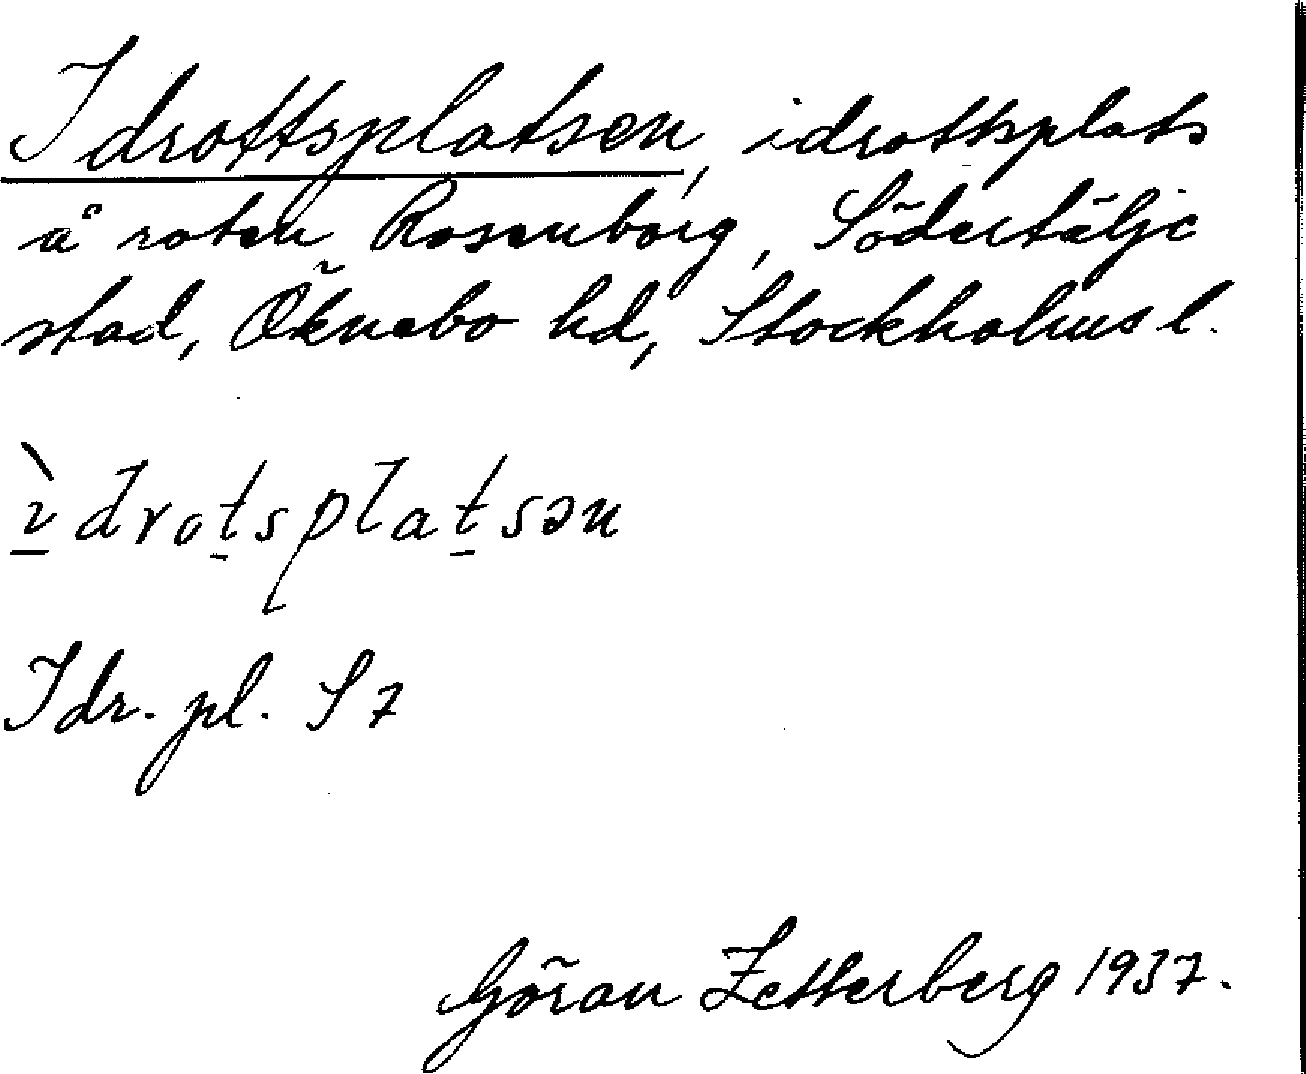 Idrottsplatsen, idrottsplats
å roten Rosenborg, Södertälje
stad, Öknebo hd, Stockholms l.
ìdrotsplatsən
Idr. pl. S 7
Göran Zetterberg 1937.